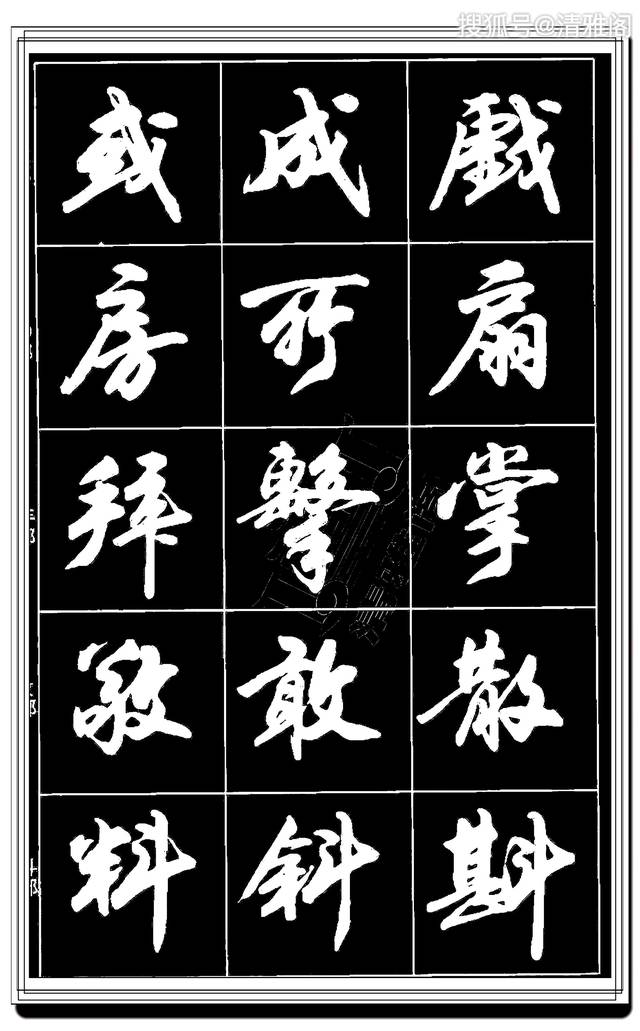 搜狐号@清雅阁
或 成 戲
房 所 扇
拜 擊 掌
敢 散
料 斜 斟